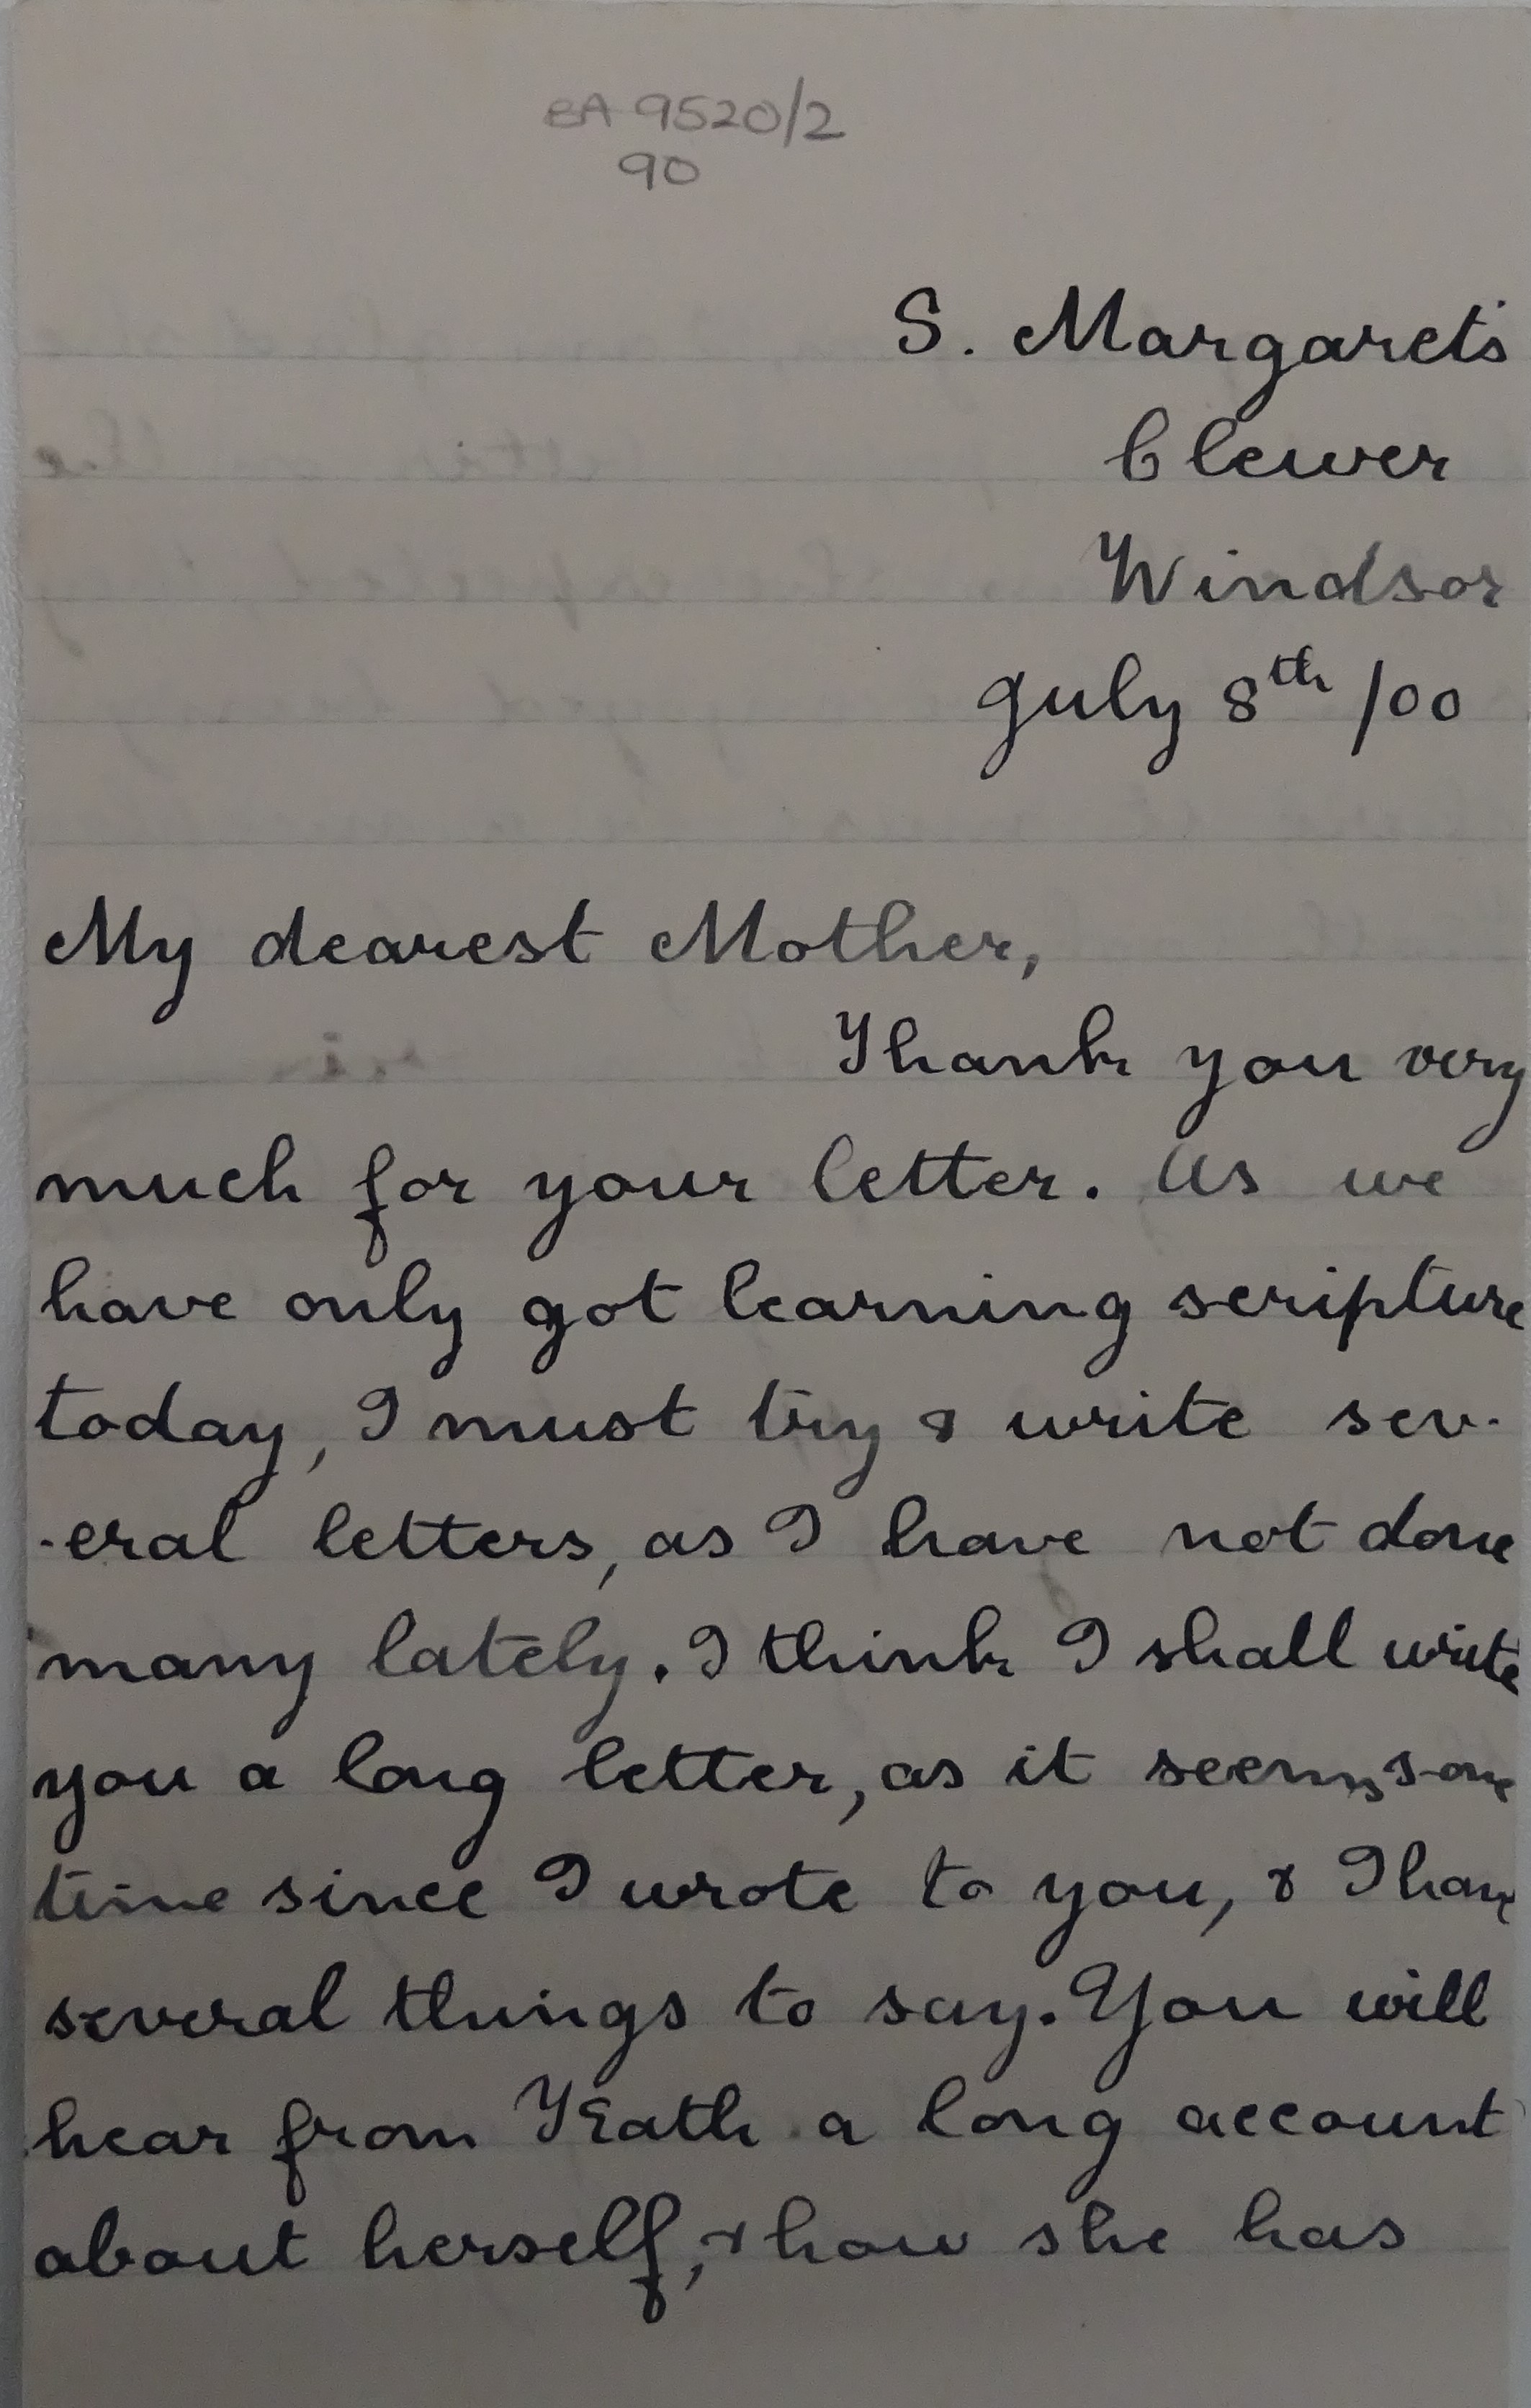 BA 9520/2
90
S. Margaret's
Clewer
Windsor
July 8th /00
My dearest Mother,
Thank you very
much for your letter. As we
have only got learning scripture
today, I must try & write sev-
-eral letters, as I have not done
many lately. I think I shall write
you a long letter, as it seems some
time since I wrote to you, & I have
several things to say. You will
hear from Kath a long account
about herself, & how she has